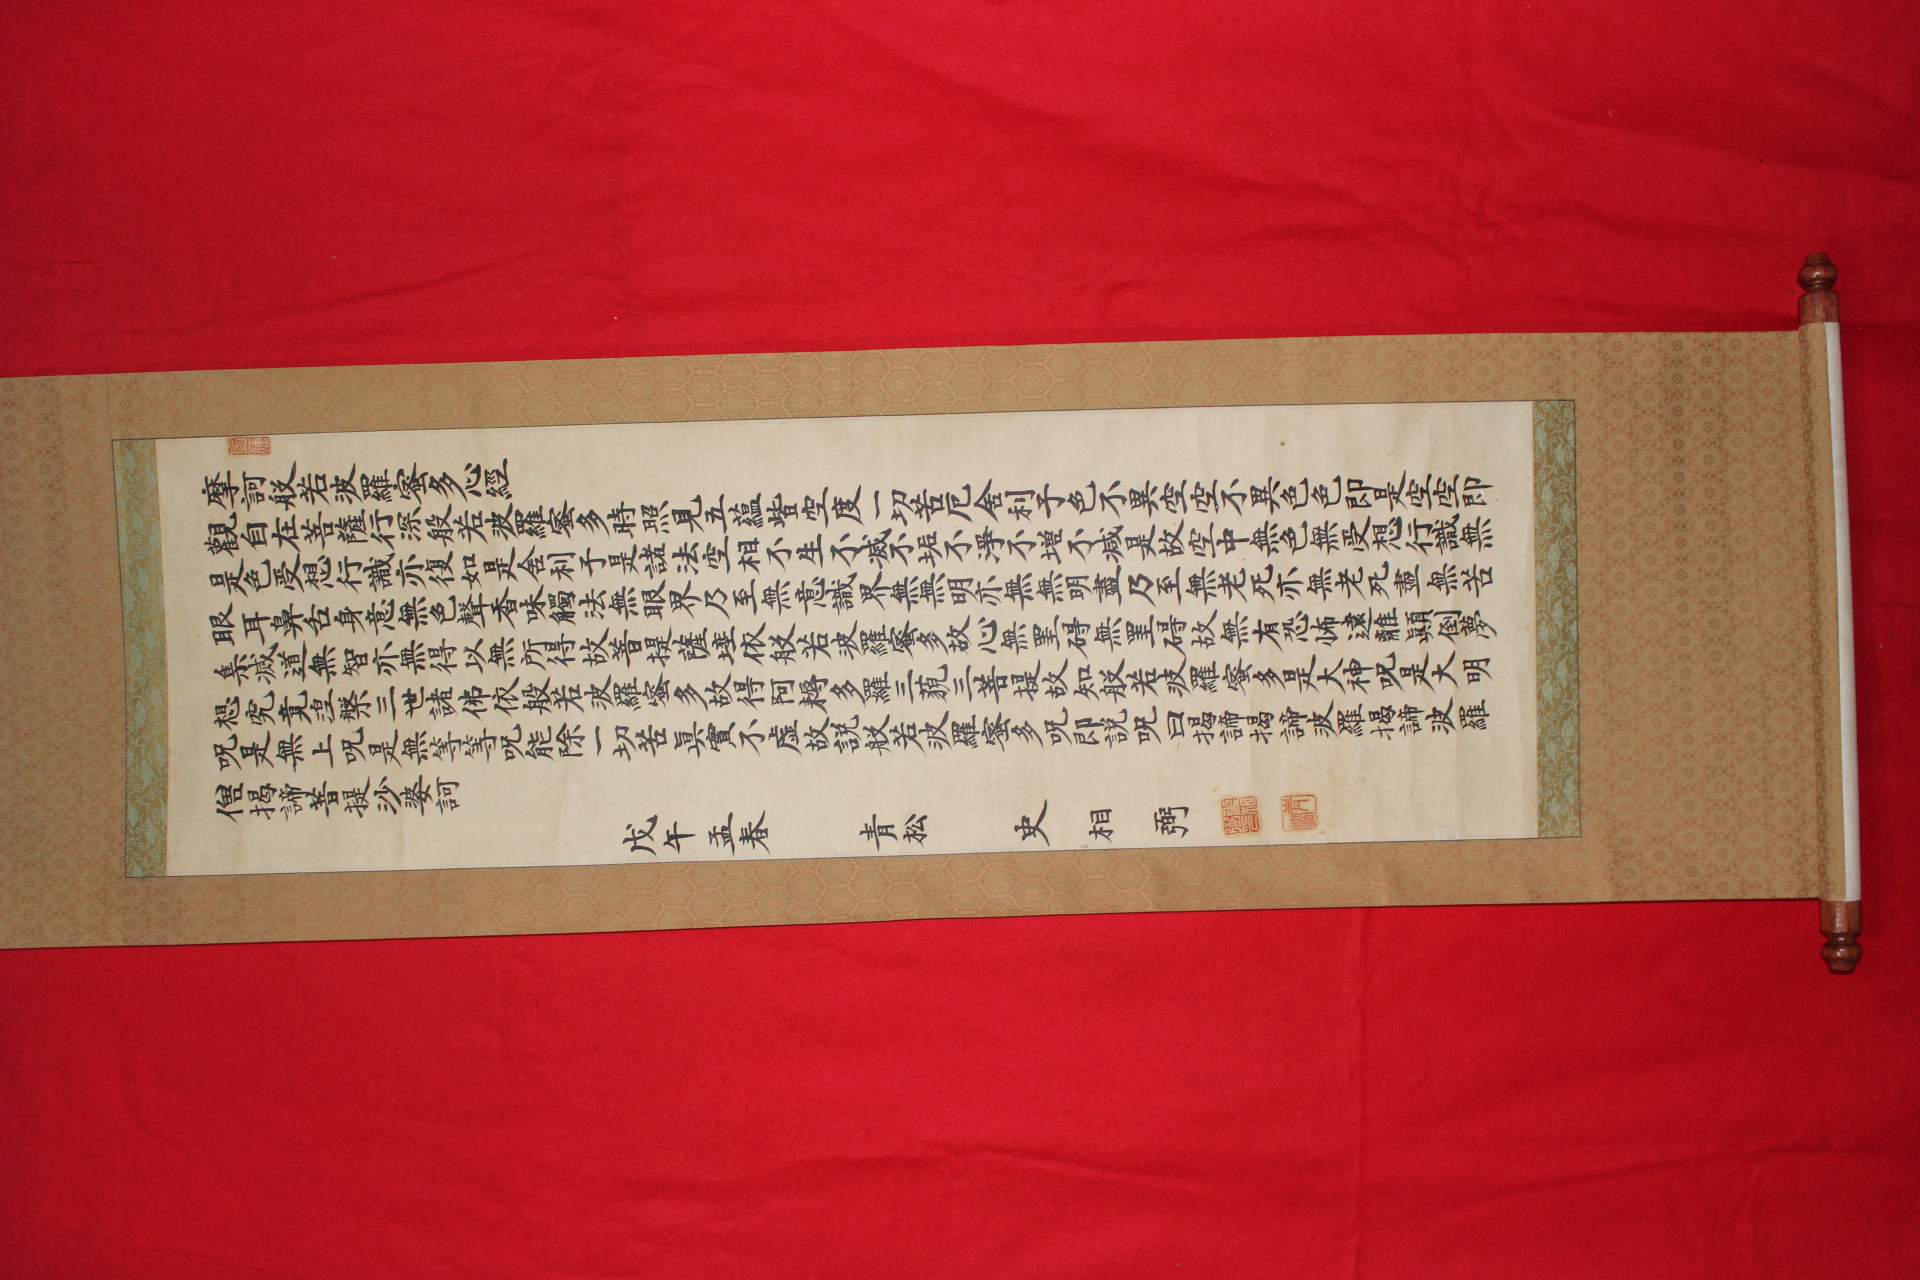 摩訶般若波羅蜜多心經
觀自在菩薩行深般若波羅蜜多時照見五蘊皆空度一切苦厄舍利子色不異空空不異色色即是空空即
是色受想行識亦復如是舍利子是諸法空相不生不滅不垢不淨不增不減是故空中無色無受想行識無
眼耳鼻舌身意無色聲香味觸法無眼界乃至無意識界無無明亦無無明盡乃至無老死亦無老死盡無苦
集滅道無智亦無得以無所得故菩提薩埵依般若波羅蜜多故心無罣碍無罣碍故無有恐怖遠離顛倒夢
想究竟涅槃三世諸佛依般若波羅蜜多故得阿耨多羅三藐三菩提故知般若波羅蜜多是大神呪是大明
呪是無上呪是無等等呪能除一切苦眞實不虛故說般若波羅蜜多呪即說呪曰揭諦揭諦波羅揭諦波羅
僧揭諦菩提沙婆訶
戊午孟春 青松 史相弼